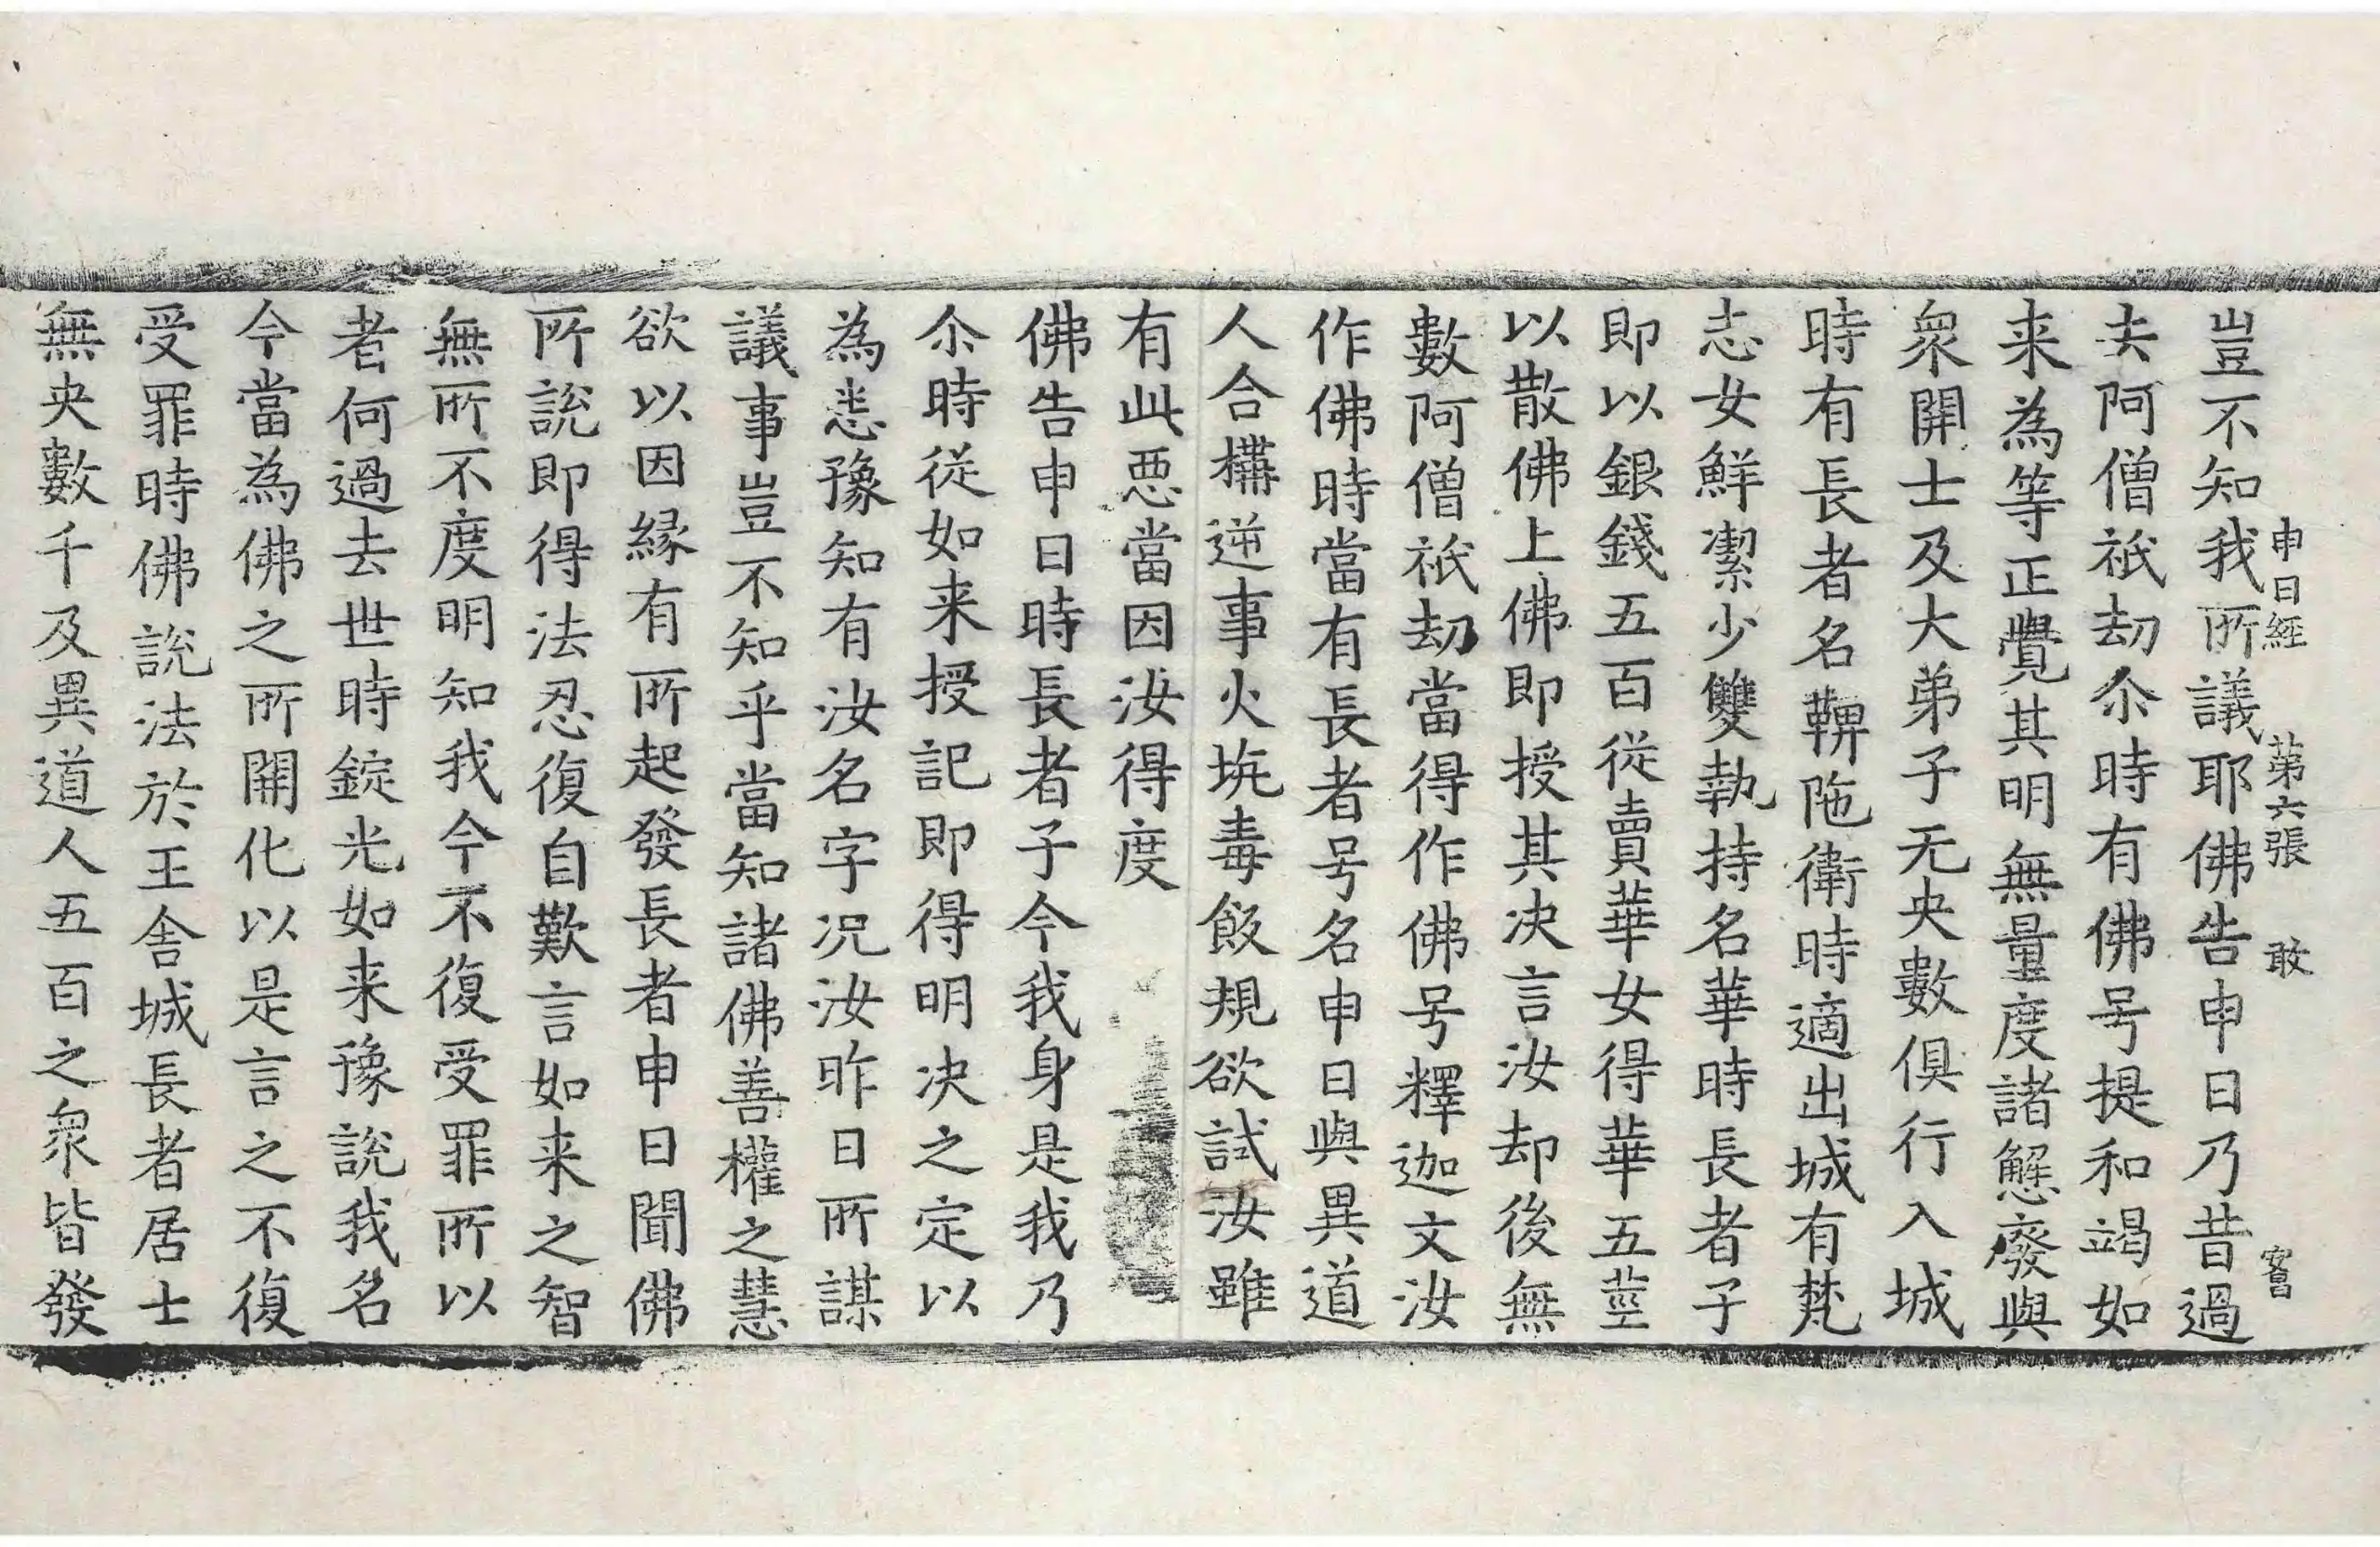 申日經 第六張 敢
豈不知我所議耶佛告申日乃昔過
去阿僧祇劫尒時有佛号提和竭如
来為等正覺其明無量度諸懈廢與
衆開士及大弟子无央數俱行入城
時有長者名鞞陁衛時適出城有梵
志女鮮潔少雙執持名華時長者子
即以銀錢五百從賣華女得華五莖
以散佛上佛即授其决言汝却後無
數阿僧祇劫當得作佛号釋迦文汝
作佛時當有長者号名申日與異道
人合構逆事火坈毒飯規欲試汝雖
有此惡當因汝得度
佛告申日時長者子今我身是我乃
尒時從如来授記即得明决之定以
為悉豫知有汝名字况汝昨日所謀
議事豈不知乎當知諸佛善權之慧
欲以因緣有所起發長者申日聞佛
所說即得法忍復自歎言如来之智
無所不度明知我今不復受罪所以
者何過去世時錠光如来豫說我名
今當為佛之所開化以是言之不復
受罪時佛說法於王舍城長者居士
無央數千及異道人五百之衆皆發